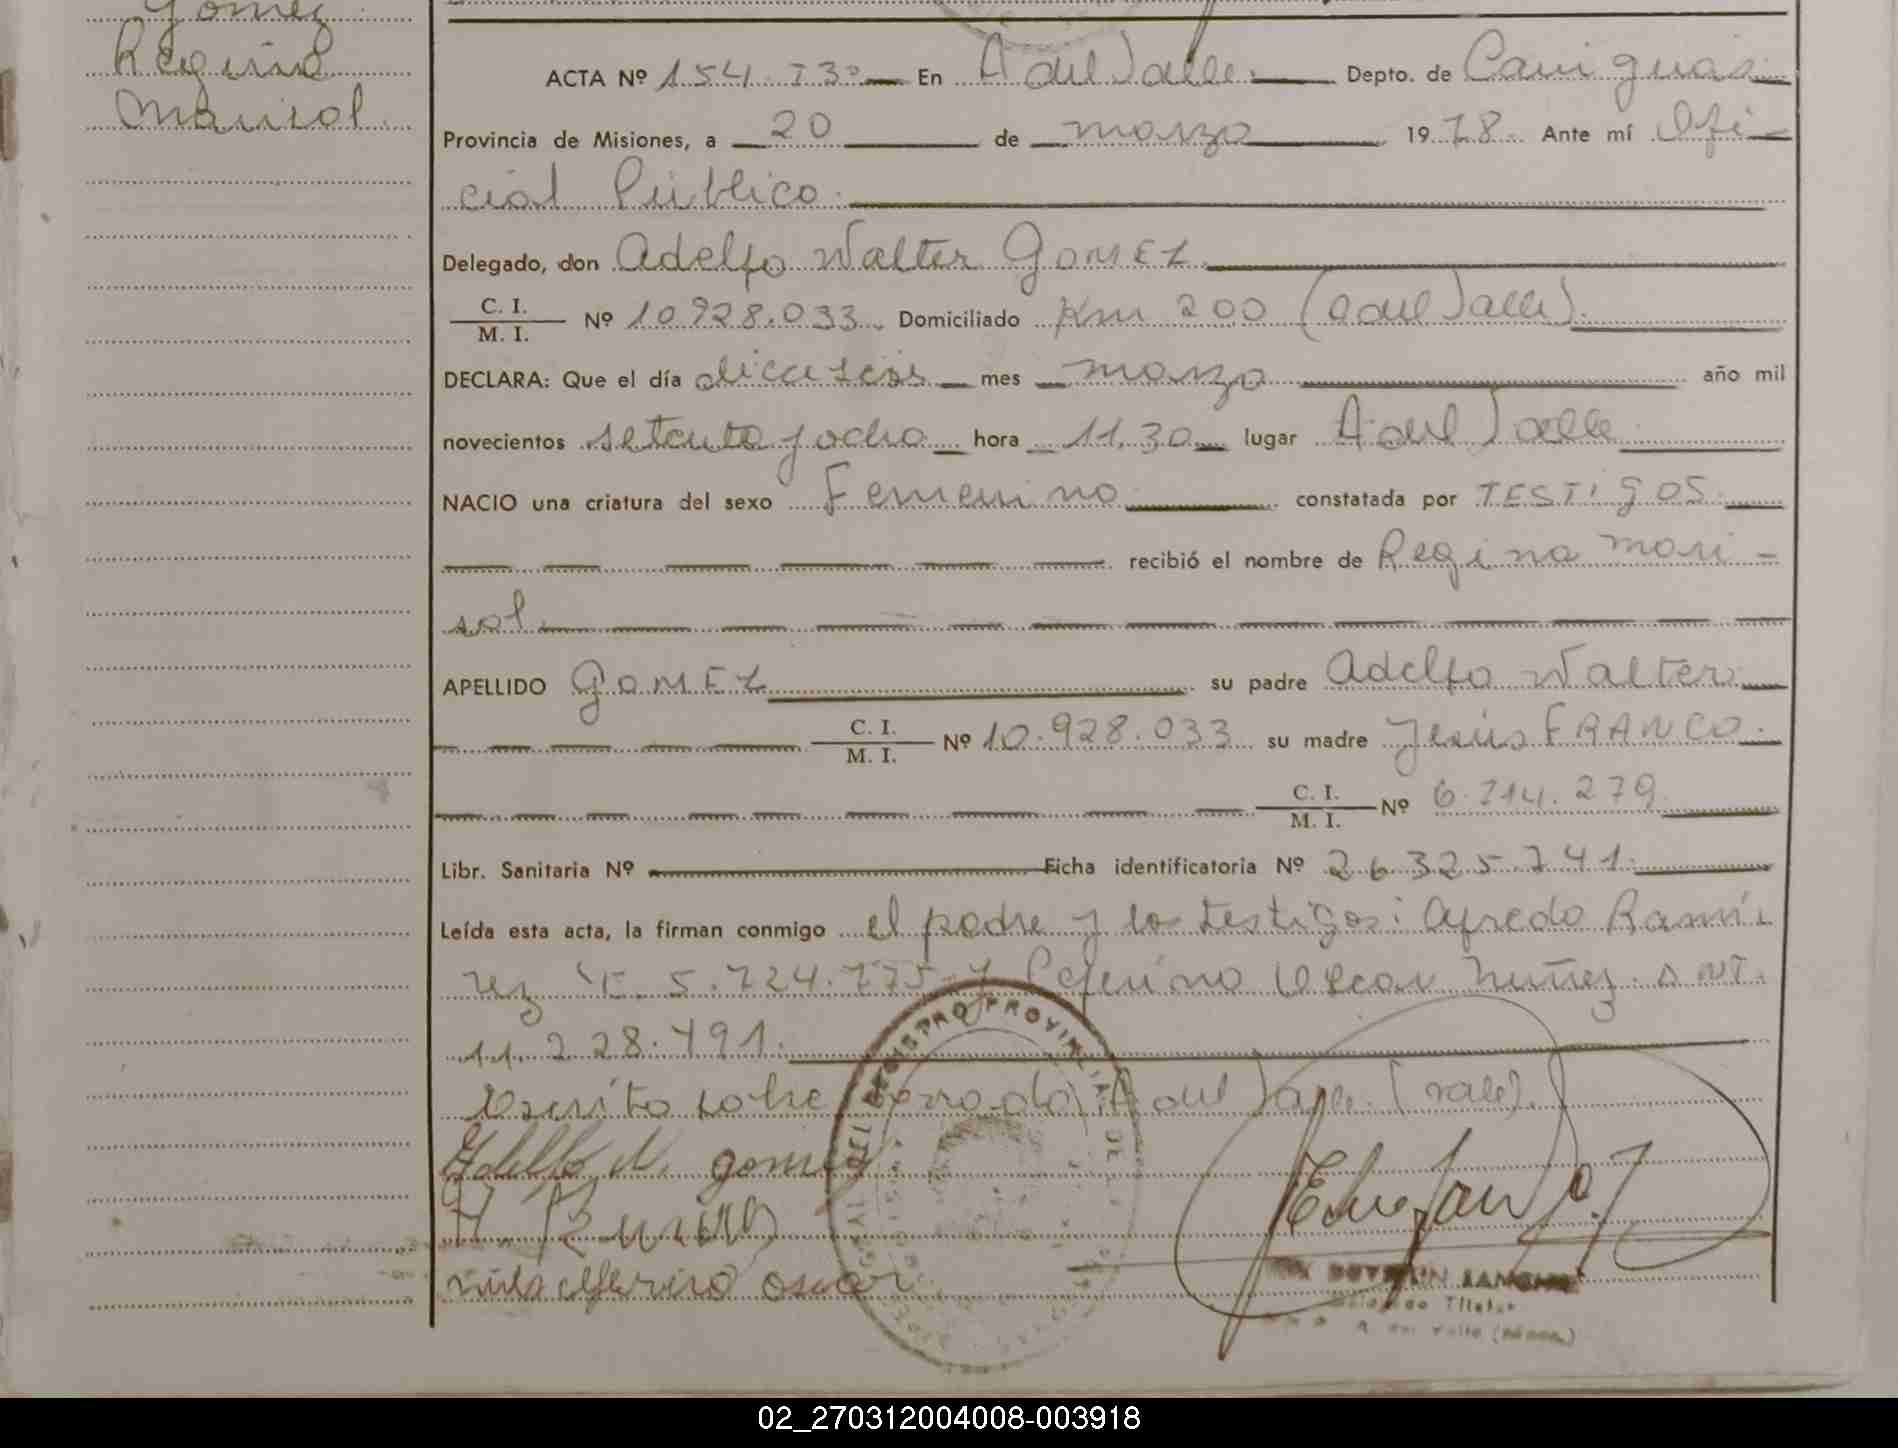 Gomez
Regina
Marisol.
ACTA Nº 154. T3º En A del Valle Depto. de Cainguas
Provincia de Misiones, a 20 de marzo 1978. Ante mí Ofi-
cial Público.
Delegado, don Adelfo Walter GOMEZ
C. I.
M. I. Nº 10.928.033. Domiciliado Km 200 (A del Valle).
DECLARA: Que el día dieciseis mes marzo año mil
novecientos setenta y ocho hora 11.30 lugar A del Valle
NACIO una criatura del sexo Femenino constatada por TESTIGOS
recibió el nombre de Regina Mari-
sol.
APELLIDO GOMEZ su padre Adelfo Walter
C. I.
M. I. Nº 10.928.033 su madre Jesús FRANCO.
C. I.
M. I. Nº 6.714.279
Libr. Sanitaria Nº Ficha identificatoria Nº 26325.741.
Leída esta acta, la firman conmigo el padre y los testigos: Alfredo Ramí-
rez 5.724.775 y Ceferino Oscar Nuñez. DNI.
11.228.491.
Escrito sobre borrado: A del Valle (vale).
Adelfo W. gomez
A. Ramirez
nuñez ceferino oscar
REGISTRO PROVINCIAL DE
SANCHEZ
Titular
A. del Valle (Mnes.)
02_270312004008-003918